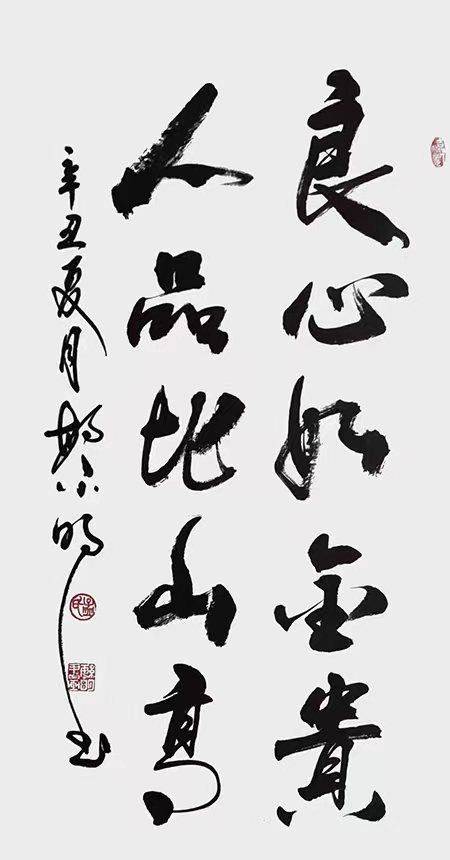 良心如金貴
人品比山高
辛丑夏月 小明 书